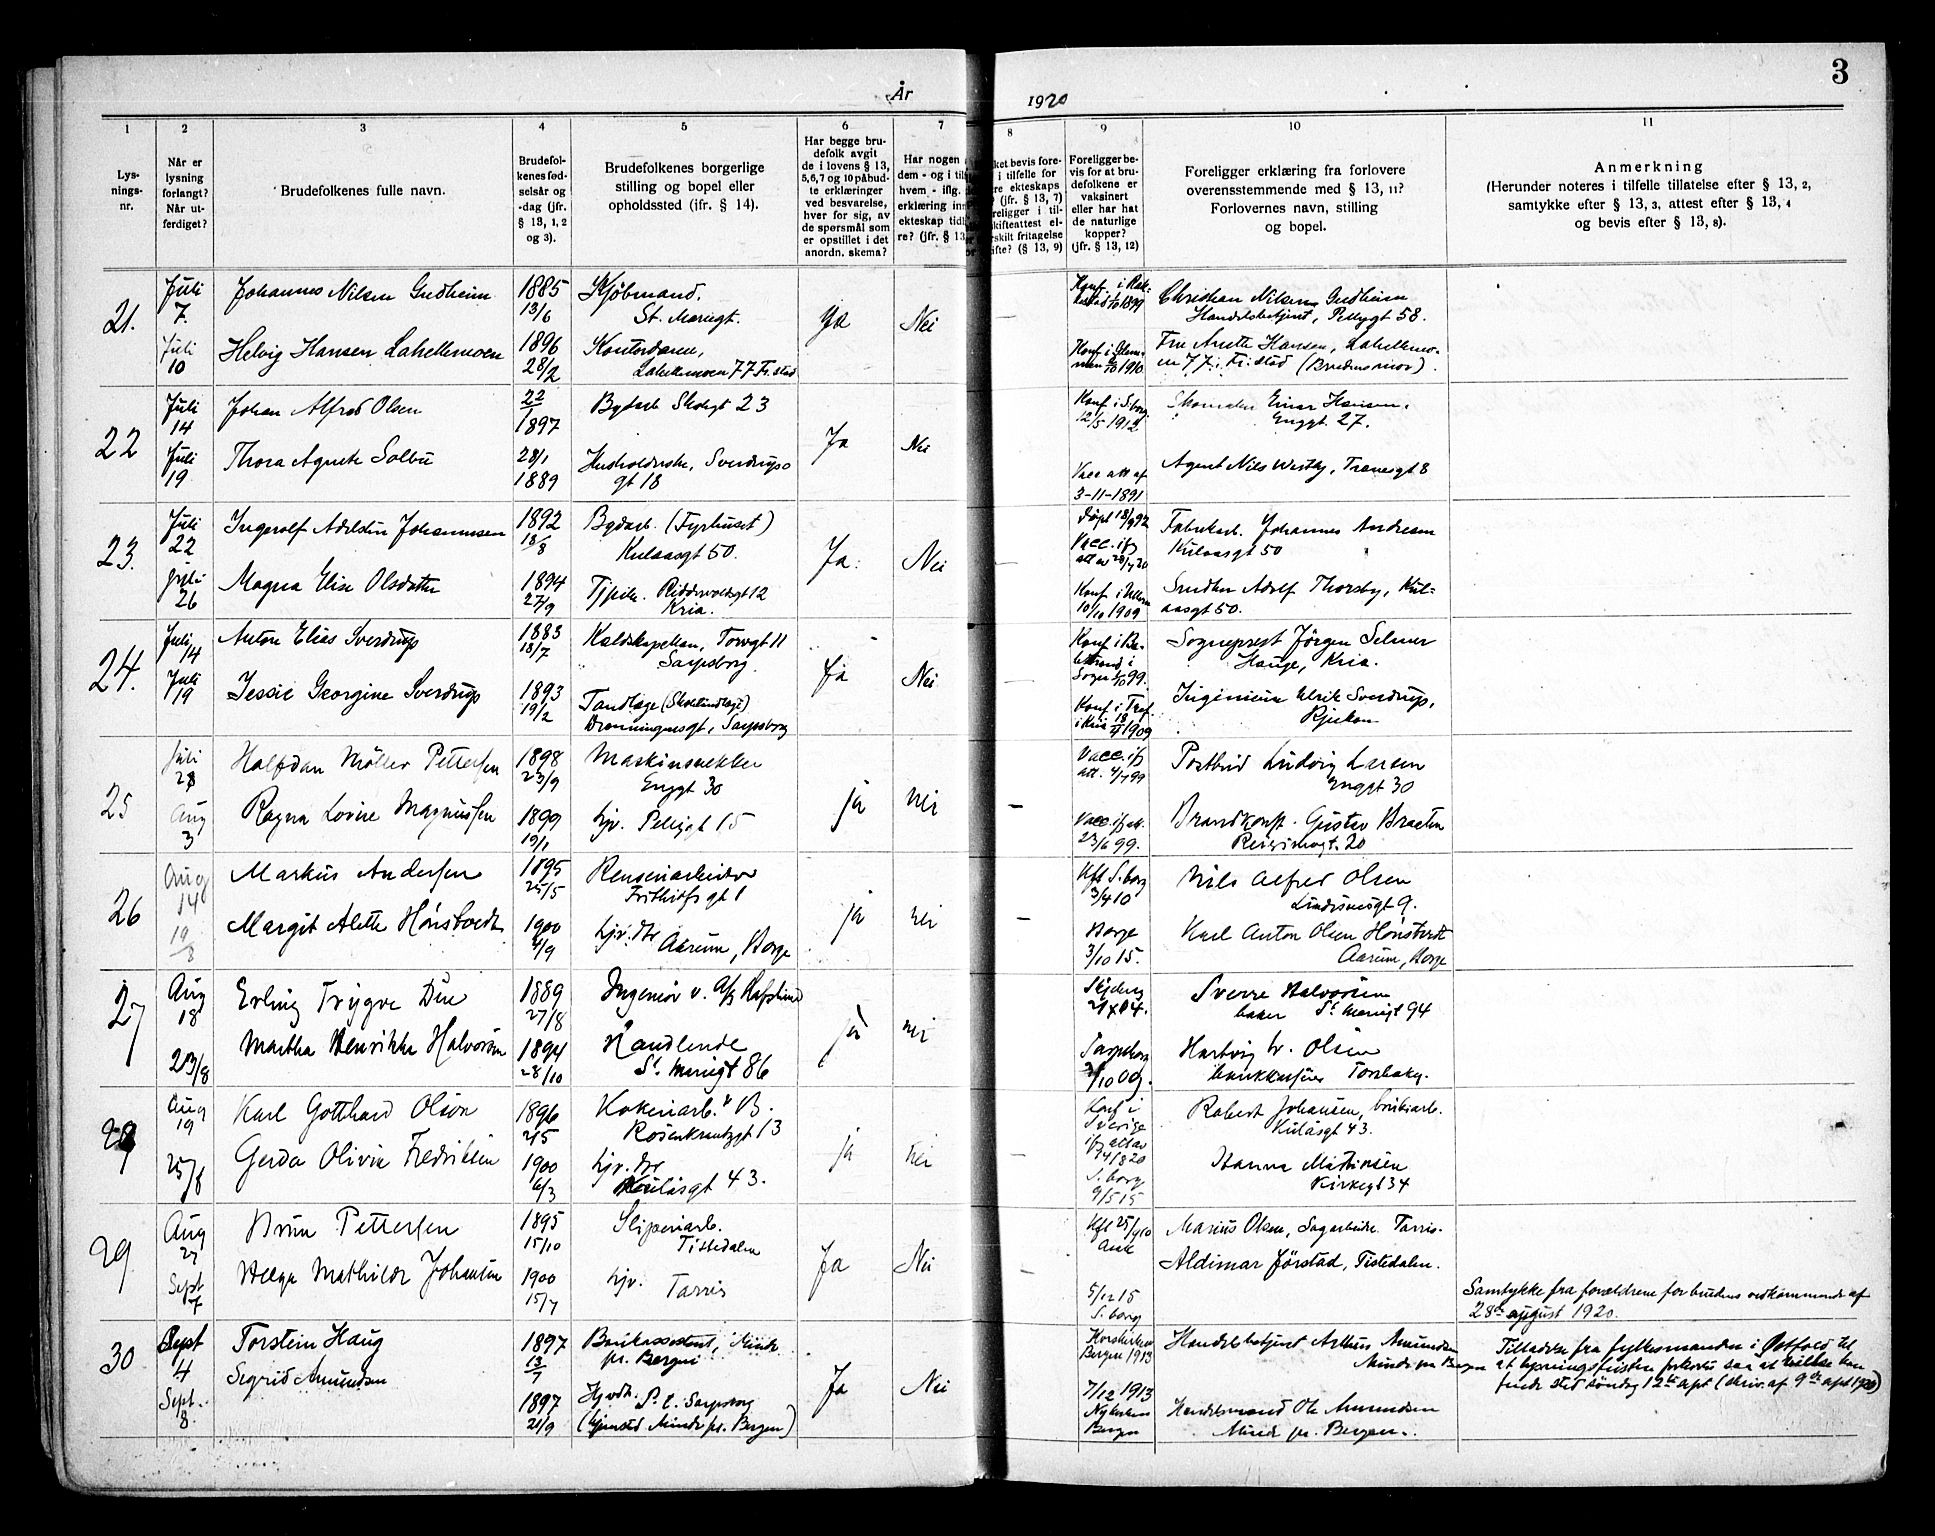 År 1920
3
1
2
3
4
5
6
7
8
9
10
11
Lysnings-
nr.
Når er
lysning
forlangt?
Når ut-
ferdiget?
Brudefolkenes fulle navn.
Brudefol-
kenes fød-
selsår og
-dag (jfr.
§ 13, 1, 2
og 3).
Brudefolkenes borgerlige
stilling og bopel eller
opholdssted (ifr. § 14).
Har begge bru-
defolk avgit
de i lovens § 13,
5, 6, 7 og 10 påbud-
te erklæringer
ved besvarelse,
hver for sig, av
de spørsmål som
er opstillet i det
anordn. skema?
Har nogen
dem - og i til
hvem - iflg.
erklæring inn
ekteskap tidl
re? (jfr. § 13
ket bevis fore-
i tilfelle for
re ekteskaps
? (jfr. § 13, 7)
religger i til-
skifteattest el-
rskilt fritagelse
ifte? (§ 13, 9)
Foreligger be-
vis for at bru-
defolkene er
vaksinert
eller har hat
de naturlige
kopper?
(jfr. § 13, 12)
Foreligger erklæring fra forlovere
overensstemmende med § 13, 11?
Forlovernes navn, stilling
og bopel.
Anmerkning
(Herunder noteres i tilfelle tillatelse efter § 13, 2,
samtykke efter § 13, 3, attest efter § 13, 4
og bevis efter § 13, 8).
21.
Juli 7.
Johannes Nilsen Gudheim
1885 13/6
Kjøbmand.
St. Mariegt.
Ja
Nei
Konf. i Rak-
kestad 1/10 1899
Christian Nilsen Gudheim
Handelsbetjent, Pellygt 58.
Juli 10
Helvig Hansen Lahellemoen
1896 28/2
Kontordame,
Lahellemoen 77 Fr.stad
Konf. i Glem-
men 1910
Fru Anette Hansen, Lahellemo-
en 77, Fr.stad (Brudens mor).
22
Juli 14
Johan Alfred Olsen
22/1 1897
Byarb. Skolegt 23
Ja
Nei
Konf i S.borg.
12/5 1912
Skomaker Einar Hansen.
Enggt. 27.
Juli 19
Thora Agnete Solbu
28/1 1889
Husholderske, Sverdrups
gt 18
Vacc att af
3-11-1891
Agent Nils Westby, Tranesgt 8
23.
Juli 22
Ingeralf Adelstin Johannessen
1892 18/8
Bydarb. (Fyrhuset)
Kulaasgt 50.
Ja.
Nei
Døpt 18/9 92
Vacc. ifg
att av 20/7 20
Fabrikarb. Johannes Andresen
Kulaasgt 50
juli 26
Magna Elise Olsdatter
1894 27/9
Tjpike. Riddervoldsgt 12
Kria.
Konf i Ullern
10/10 1909
Snedker Adolf Thorsby, Kul-
aasgt 50.
24.
Juli 14
Anton Elias Sverdrup
1883 18/7
Kaldskapellan, Torvgt 11
Sarpsborg.
Ja
Nei
Konf i Ba-
lestrand i
Sogn 99.
Sogneprest Jørgen Selmer
Hauge, Kria.
Juli 19
Jessie Georgine Sverdrup
1893 19/2
Tandlæge (Skoletandlæge)
Dronningensgt, Sarpsborg
Konf. i Tref.
i Kria 18/4 1909
Ingeniør Ulrik Sverdrup,
Rjukan
25
Juli 28
Halfdan Møller Pettersen
1898 23/9
Maskinsnekker
Enggt 30
ja
nei
–
Vacc. if
att. 4/7 99
Postbud Ludvig Larsen
Enggt 30
Aug 3
Ragna Lovise Magnussen
1899 19/1
hjv. Pellygt 15
Vacc. if att.
23/6 99.
Brandkonst. Gustav Braaten
20
26
Aug 14
Markus Andersen
1895 25/5
Renseriarbeider
Frithiofs gt 1
ja
nei
–
Kft S.borg
3/4 10
Nils Alfred Olsen
Lindemsgt 9.
19/8
Margit Alette Hønstvedt
1900 4/9
hjv. dtr
Aarum, Borge
Borge
3/10 15.
Karl Anton Olsen Hønstvedt
Aarum, Borge
27
Aug 18
Erling Trygve Due
1889 27/8
Ingeniør v. A/S Hafslund
ja
nei
–
Skjeberg
04.
Sverre Halvorsen
baker St. Mariegt 94
23/8
Martha Henrikke Halvorsen
1894 28/10
Handlende
St. Mariegt 86
Sarpsborg
3/10 09.
Hartvig Olsen
bankkasserer Torsbakg.
28
Aug 19
Karl Gotthard Olson
1896 2/5
Kokeriarb. B.
Rosenkrantzgt 13
ja
nei
–
Konf i
Sverige
if attav
14/8 20
Robert Johansen, brukiarb.
Kulåsgt 43.
25/8
Gerda Olivie Fredriksen
1900 6/3
hjv. dtr
Kulåsgt 43.
S.borg
9/5 15
Hanna Mathisen
Kirkegt 34
29
Aug 27
Brun Pettersen
1895 15/10
Sliperiarb.
Tistedalen
Ja
Nei
Kft 25/9 10
Marius Olsen, Sagarbeider. Tarris.
Sept 7
Helga Mathilde Johansen
1900 15/7
hjv.
Tarris
5/12 15
S.borg
Aldimar Jørstad, Tistedalen.
Samtykke fra forældrene for brudens vedkommende af
28de august 1920.
30
Sept 4
Torstein Haug
1897 13/7
Bankassistent, Minde
pr. Bergen
Ja
Nei
Korskirken
Bergen 1913
Handelsbetjent Arthur Amundsen
Minde pr Bergen
Tilladelse fra fylkesmanden i Østfold til
at lysningsfristen forkortes saa at vielse kan
finde sted søndag 12te spt (skriv. af 9de spt 1920)
Sept. 8.
Sigrid Amundsen
1897 21/9
Hjvdt. P. t. Sarpsborg
(hjemsted Minde pr. Bergen)
7/12 1913
Nykirken
Bergen
Handelsmand Ole Amundsen
Minde pr. Bergen.